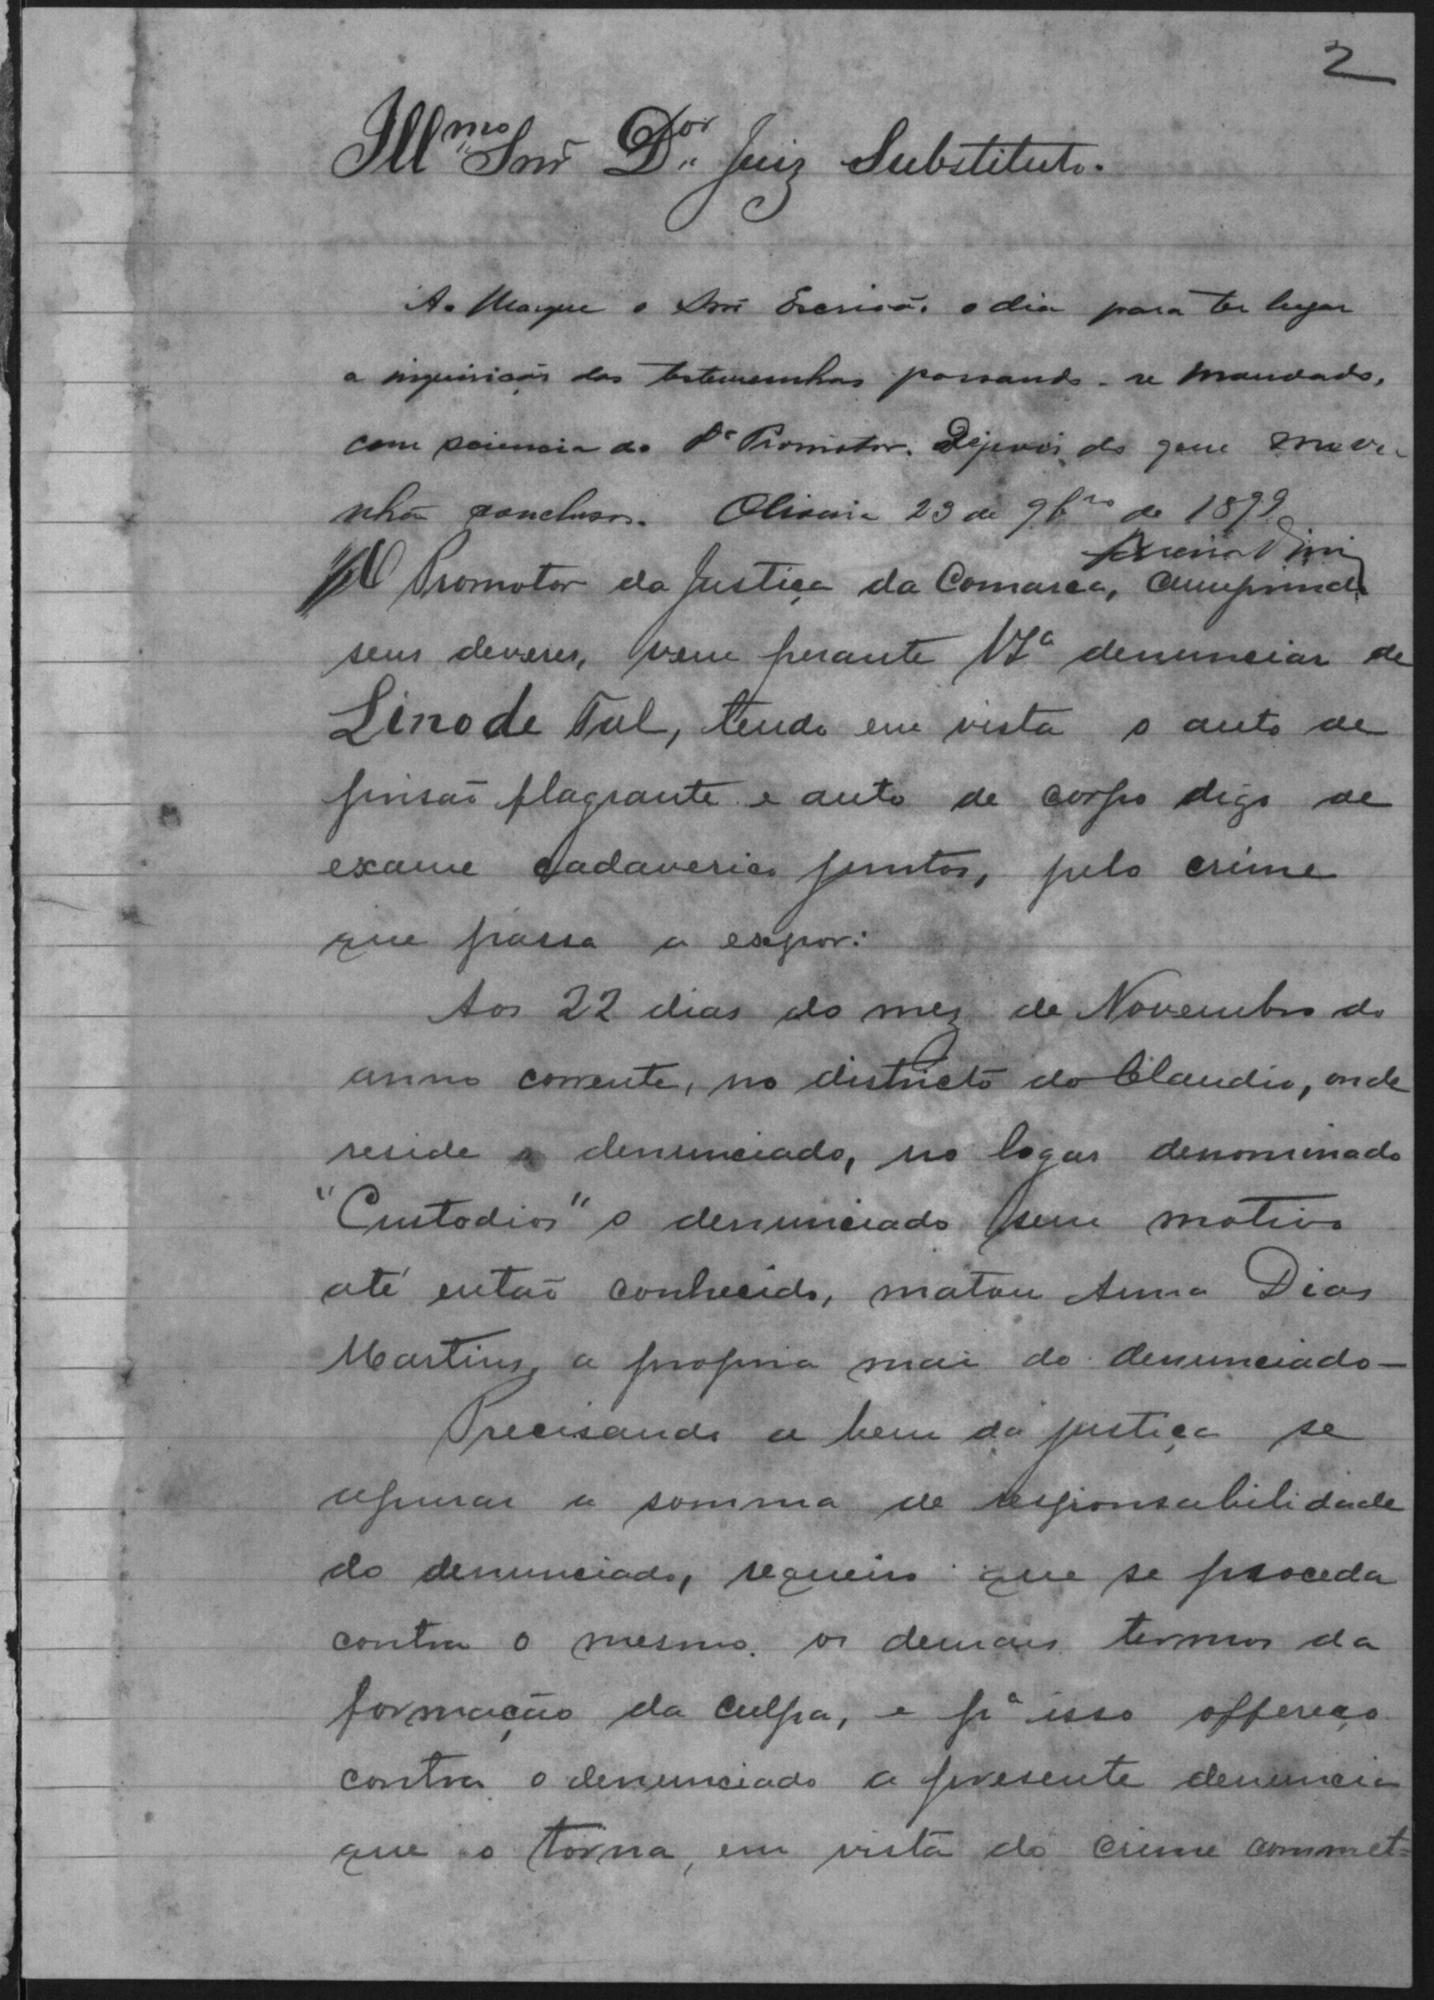 2
Illmo Snr Dor Juiz Substituto.
A. Marque o Snr Escrivão o dia para ter lugar
a inquirição das testemunhas passando-se mandado,
com sciencia do Dr Promotor. Depois do que me ve-
nhão conclusos. Oliveira 23 de 9bro de 1899
O Promotor da Justiça da Comarca, cumprindo
seus deveres, vem perante VSa denunciar de
Lino de Tal, tendo em vista o auto de
prisão flagrante e auto de corpo digo de
exame cadaverico juntos, pelo crime
que passa a expor:
Aos 22 dias do mez de Novembro do
anno corrente, no districto do Claudio, onde
reside o denunciado, no logar denominado
"Custodios" o denunciado sem motivo
até então conhecido, matou Anna Dias
Martins, a propria mai do denunciado—
Precisando a bem da justiça se
apurar a somma de responsabilidade
do denunciado, requeiro que se proceda
contra o mesmo os demais termos da
formação da culpa, e pa isso offereço
contra o denunciado a presente denuncia
que o torna, em vista do crime commet=